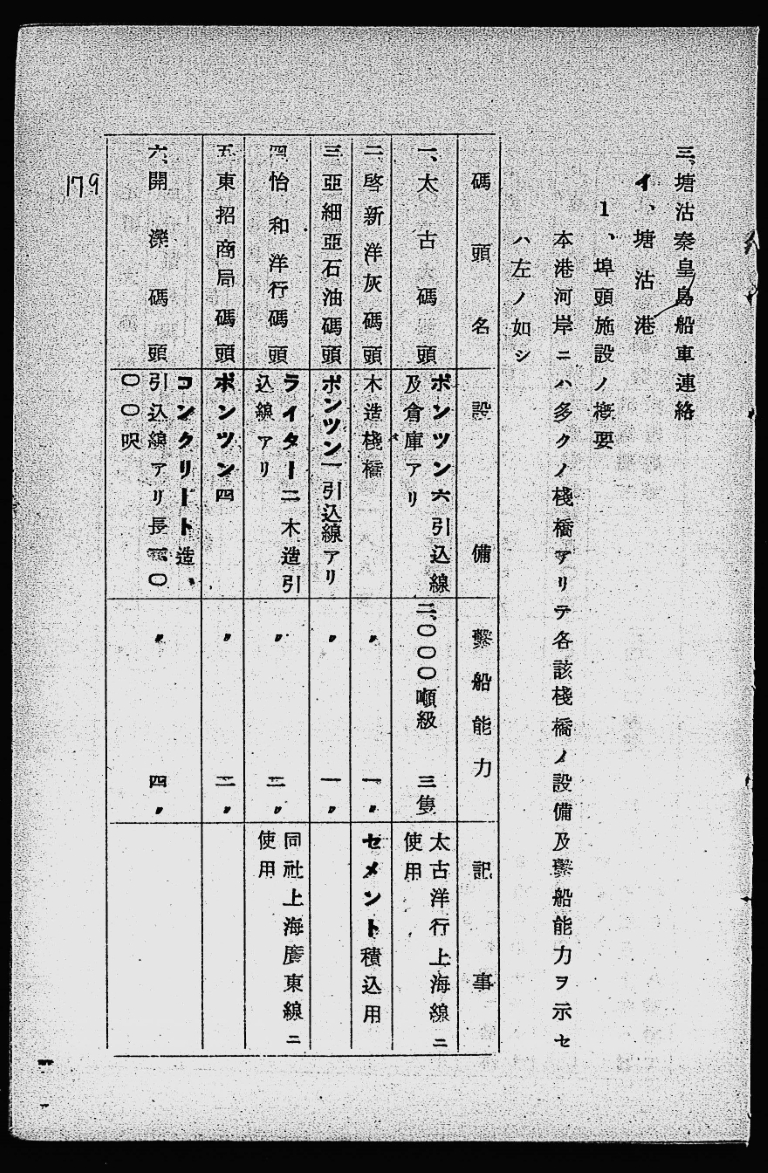 三、塘沽秦皇島船車連絡
イ、塘沽港
1、埠頭施設ノ概要
本港河岸ニハ多クノ棧橋アリテ各該棧橋ノ設備及繫船能力ヲ示セ
ハ左ノ如シ
碼頭名 設備 繫船能力 記事
一、太古碼頭 ポンツン六引込線
及倉庫アリ 二、〇〇〇噸級 三隻 太古洋行上海線ニ
使用
二、啓新洋灰碼頭 木造棧橋 〃 一〃 セメント積込用
三、亞細亞石油碼頭 ポンツン一引込線アリ 〃 一〃
四、怡和洋行碼頭 ライター二木造引
込線アリ 〃 二〃 同社上海廣東線ニ
使用
五、東招商局碼頭 ポンツン四 〃 二〃
六、開灤碼頭 コンクリート造、
引込線アリ長 〇
〇〇呎 〃 四〃
179